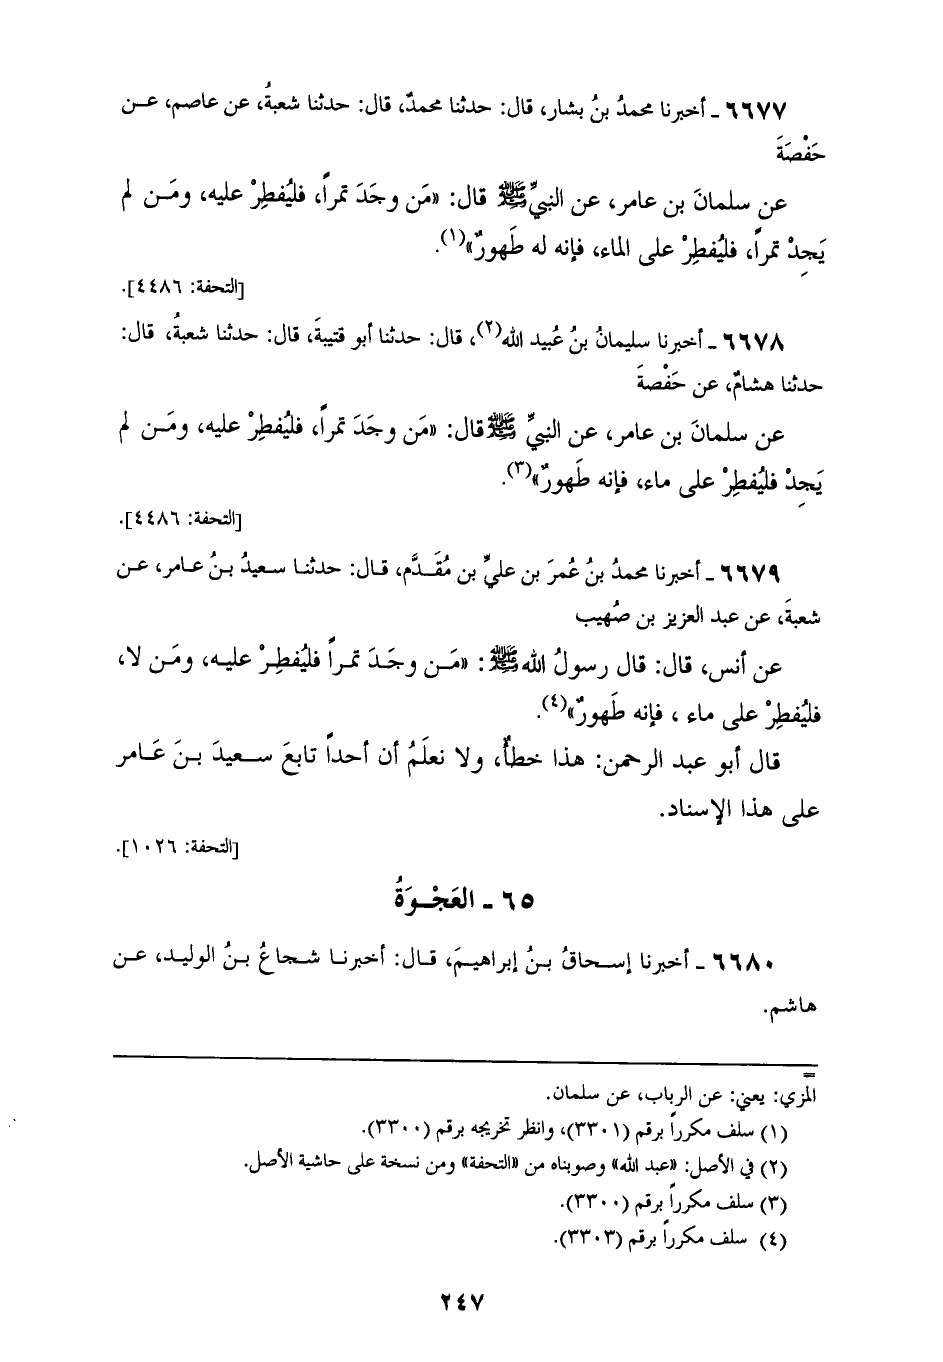 ٦٦٧٧ ـ أخبرنا محمدُ بنُ بشار، قال: حدثنا محمدٌ، قال: حدثنا شعبةُ، عن عاصم، عــن
حَفْصَةَ
عن سلمانَ بن عامر، عن النبيِّ ﷺ قال: «مَن وجَدَ تمراً، فليُفطِرْ عليه، ومَــن لم
يَجِدْ تمراً، فليُفطِرْ على الماء، فإنه له طَهورٌ»(١).
[التحفة: ٤٤٨٦].
٦٦٧٨ ـ أخبرنا سليمانُ بنُ عُبيد الله(٢)، قال: حدثنا أبو قتيبةَ، قال: حدثنا شعبةُ، قال:
حدثنا هشامٌ، عن حَفْصةَ
عن سلمانَ بن عامر، عن النبيِّ ﷺ قال: «مَن وجَدَ تمراً، فليُفطِرْ عليه، ومَــن لم
يَجِدْ فليُفطِرْ على ماء، فإنه طَهورٌ»(٣).
[التحفة: ٤٤٨٦].
٦٦٧٩ ـ أخبرنا محمدُ بنُ عُمرَ بن عليِّ بن مُقَــدَّم، قــال: حدثنــا سعيدُ بــنُ عــامر، عــن
شعبةَ، عن عبد العزيز بن صُهيب
عن أنس، قال: قال رسولُ الله ﷺ: «مَــن وجَــدَ تمــراً فليُفطِــرْ عليــه، ومَــن لا،
فليُفطِرْ على ماء ، فإنه طَهورٌ»(٤).
قال أبو عبد الرحمن: هذا خطأٌ، ولا نعلَمُ أن أحداً تابعَ ســعيدَ بــنَ عَــامر
على هذا الإسناد.
[التحفة: ١٠٢٦].
٦٥ ـ العَجْــوَةُ
٦٦٨٠ ـ أخبرنا إســحاقُ بــنُ إبراهيــمَ، قــال: أخبرنــا شــجاعُ بــنُ الوليــد، عــن
هاشم.
=
المزي: يعني: عن الرباب، عن سلمان.
(١) سلف مكرراً برقم (٣٣٠١)، وانظر تخريجه برقم (٣٣٠٠).
(٢) في الأصل: «عبد الله» وصوبناه من «التحفة» ومن نسخة على حاشية الأصل.
(٣) سلف مكرراً برقم (٣٣٠٠).
(٤) سلف مكرراً برقم (٣٣٠٣).
٢٤٧